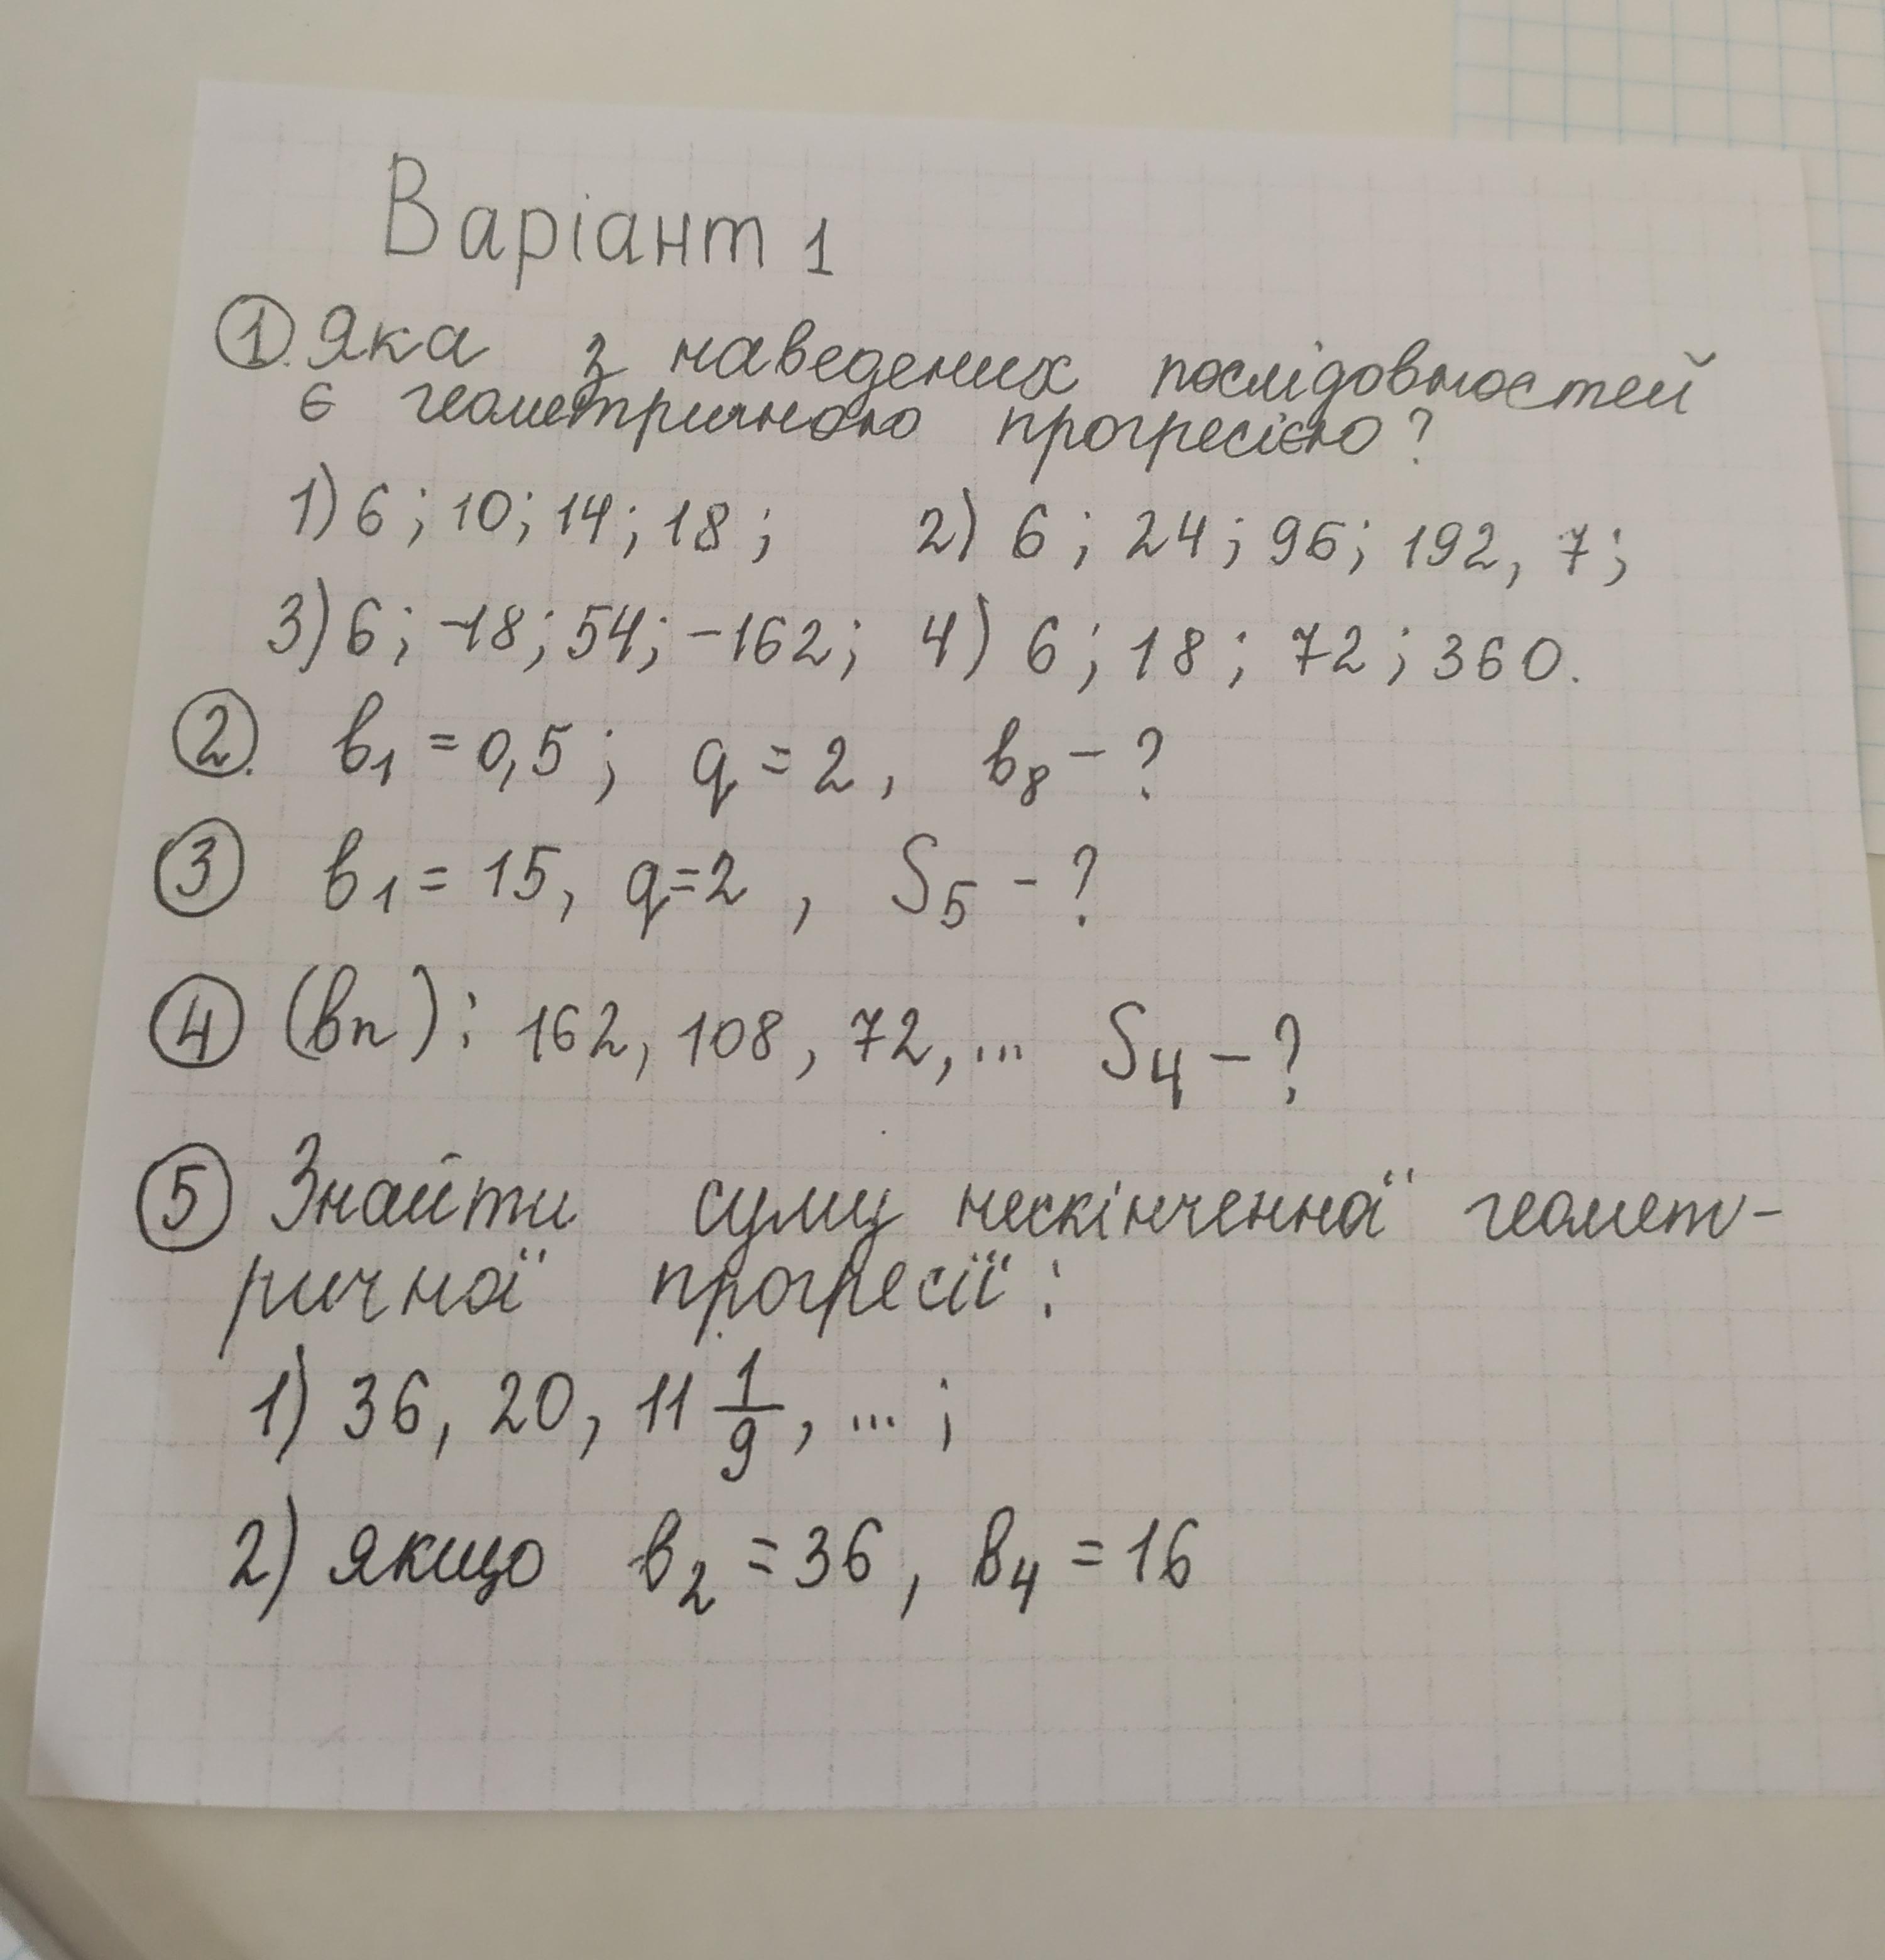 Варіант 1
1. Яка з наведених послідовностей
є геометричною прогресією?
1) 6; 10; 14; 18; 2) 6; 24; 96; 192, 7;
3) 6; -18; 54; -162; 4) 6; 18; 72; 360.
2. b₁ = 0,5; q = 2, b₈ - ?
3 b₁ = 15, q=2, S₅ - ?
4 (bn): 162, 108, 72, ... S₄ - ?
5 Знайти суму нескінченної геомет-
ричної прогресії:
1) 36, 20, 11 1/9, ... ;
2) якщо b₂ = 36, b₄ = 16